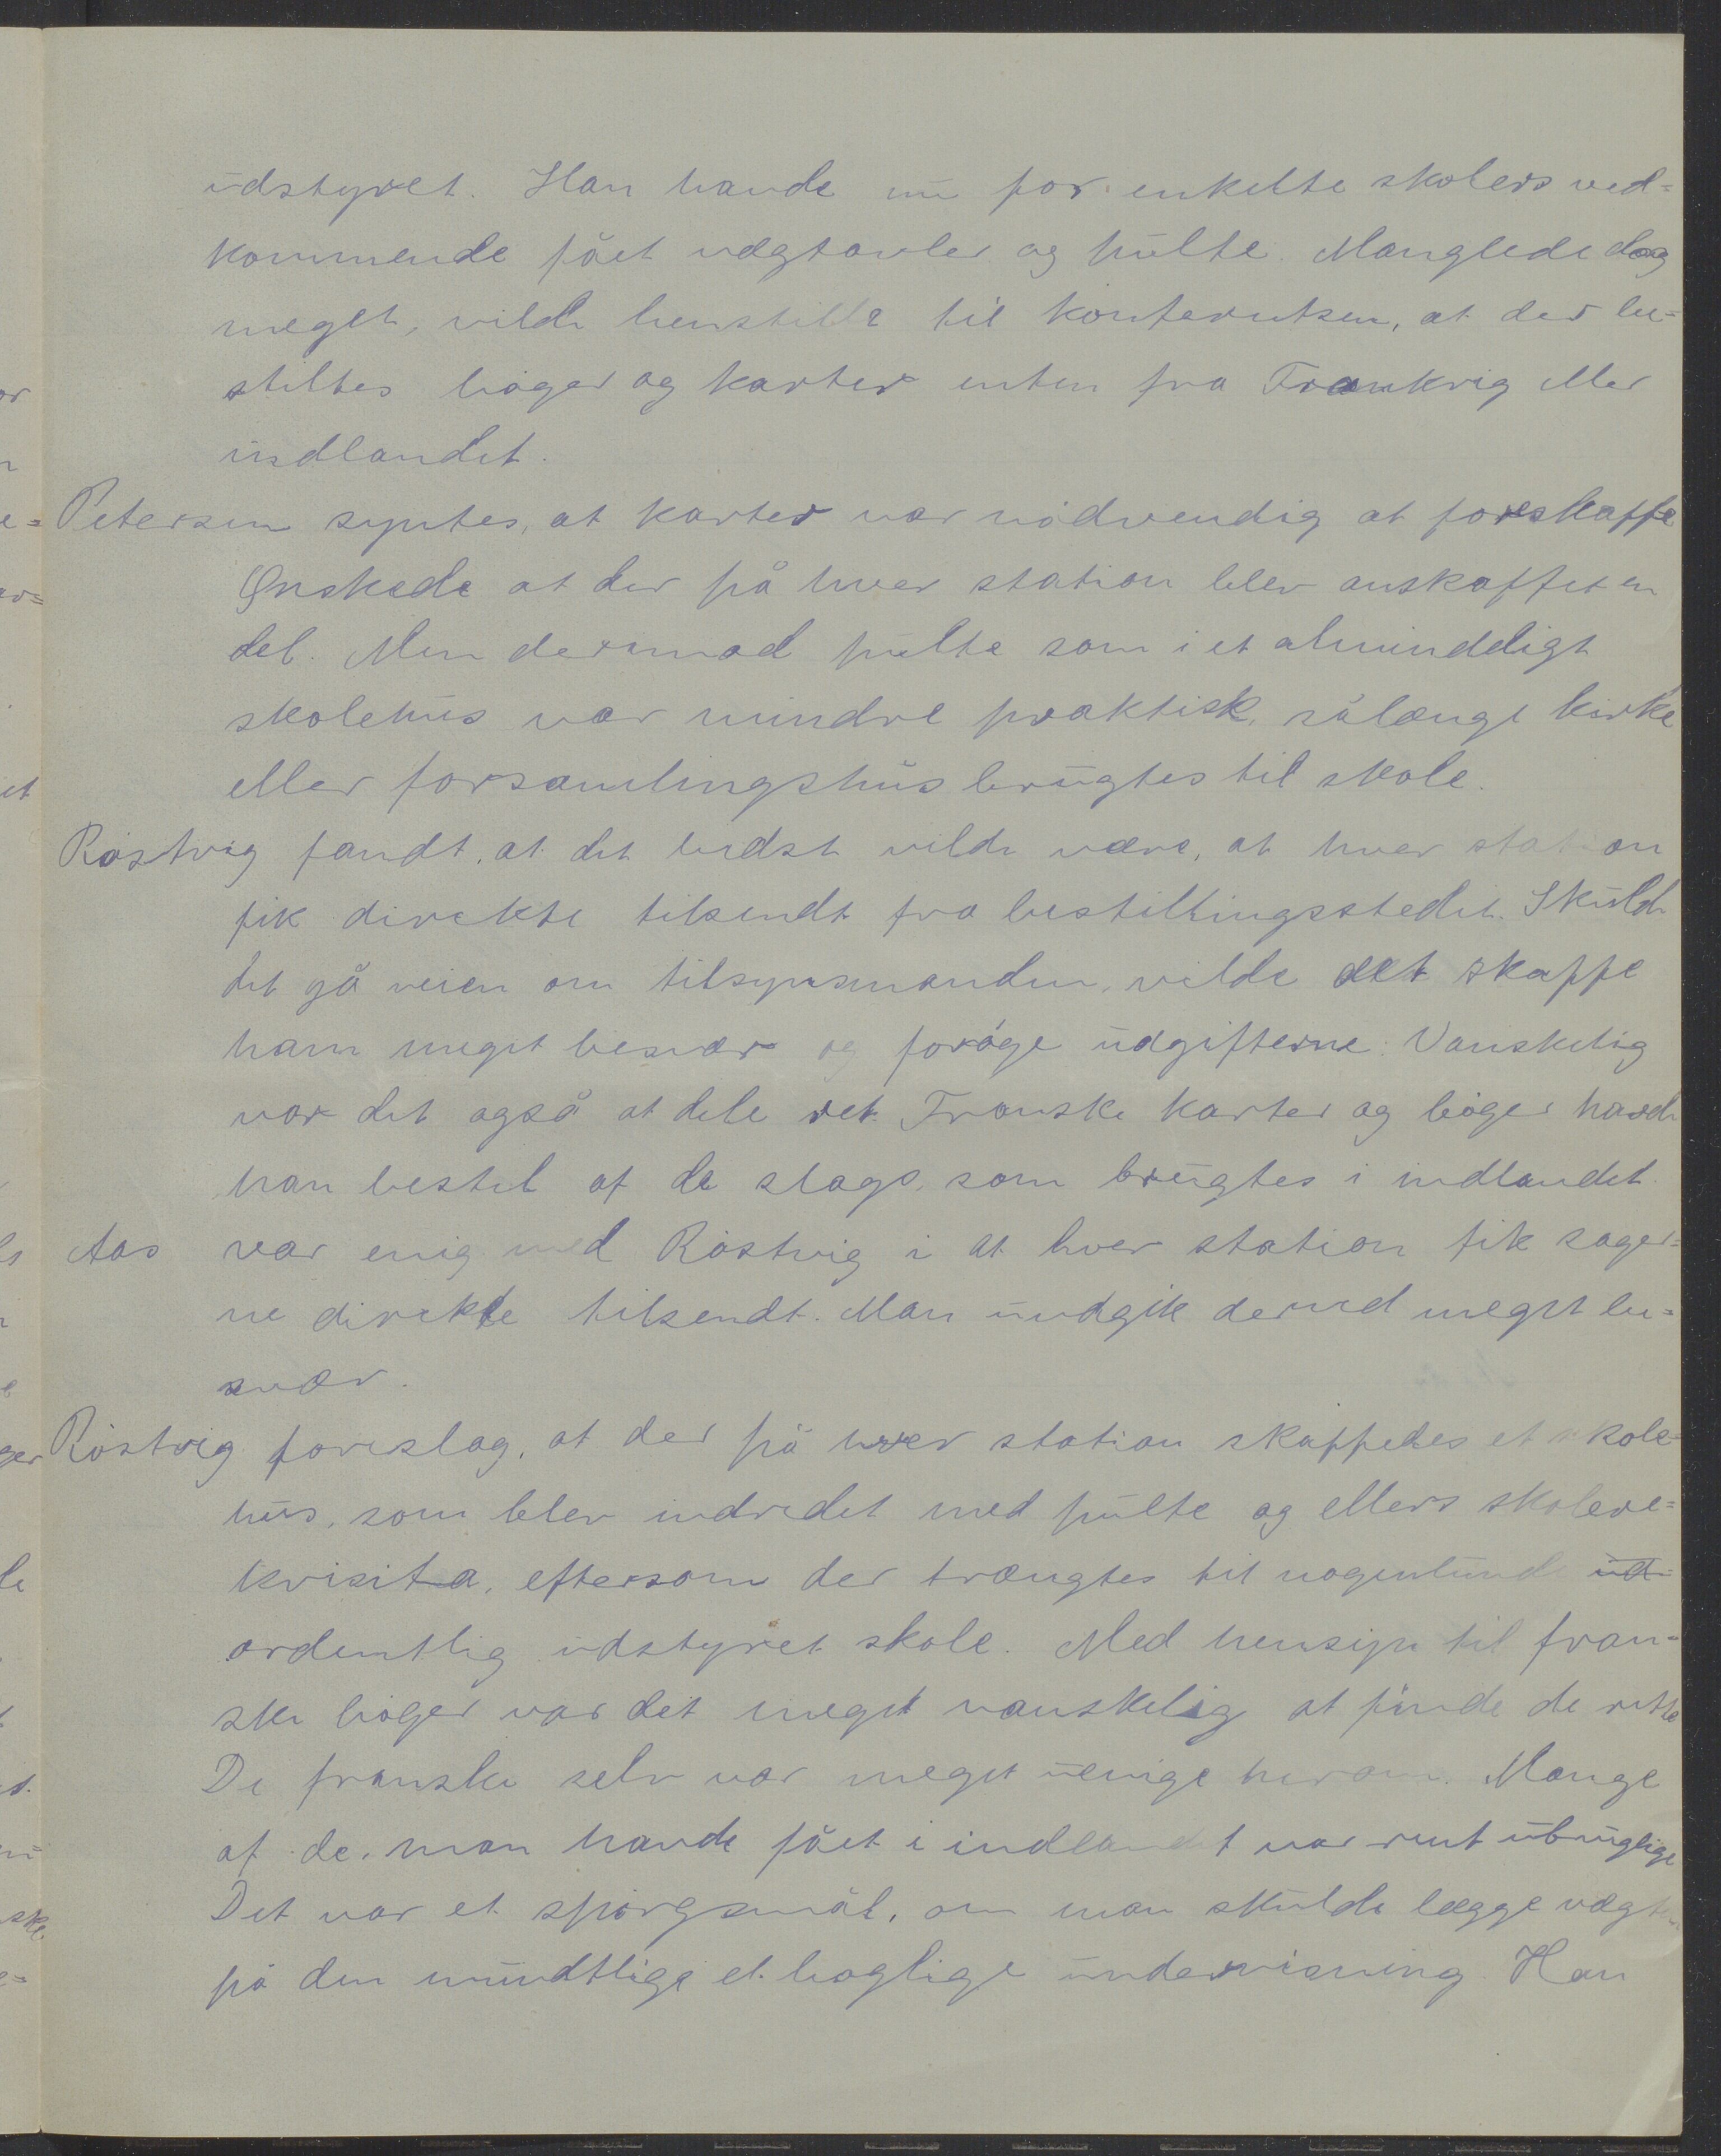 udstyret. Han havde nu for enkelte skolers ved=
kommende fået vægtavler og pulte. Manglede dog
meget, vilde henstille til konferentsen, at der be=
stiltes bøger og karter enten fra Frankrig eller
indlandet.
Petersen syntes, at karter var nödvendig at forskaffe
Ønskede at der på hver station blev anskaffet en
del. Men derimod pulte som i et alminddeligt
skolehus var mindre praktisk, sålænge kirke
eller forsamlingshus brugtes til skole.
Röstvig fandt, at det bedst vilde være, at hver station
fik direkte tilsendt fra bestillingsstedet. Skulde
det gå veien om tilsynsmanden, vilde det skaffe
ham meget besvær og foröge udgifterne. Vanskelig
var det også at dele ret. Franske karter og böger havde
han bestil af de slags, som brugtes i indlandet.
Aas var enig med Röstvig i at hver station fik sager=
ne direkte tilsendt. Man undgik derved meget be=
svær.
Röstvig foreslog, at der på hver station skaffedes et skole=
hus, som blev indredet med pulte og ellers skolere=
kvisita, eftersom der trængtes til nogenlunde ud=
ordentlig udstyret skole. Med hensyn til fran=
ske böger var det meget vanskelig at finde de rette
De franske selv var meget uenige herom. Mange
af de, man havde fået i indlandet var rent ubruglige
Det var et spörgsmål, om man skulde lægge vægten
på den mundtlige el. boglige undervisning. Han